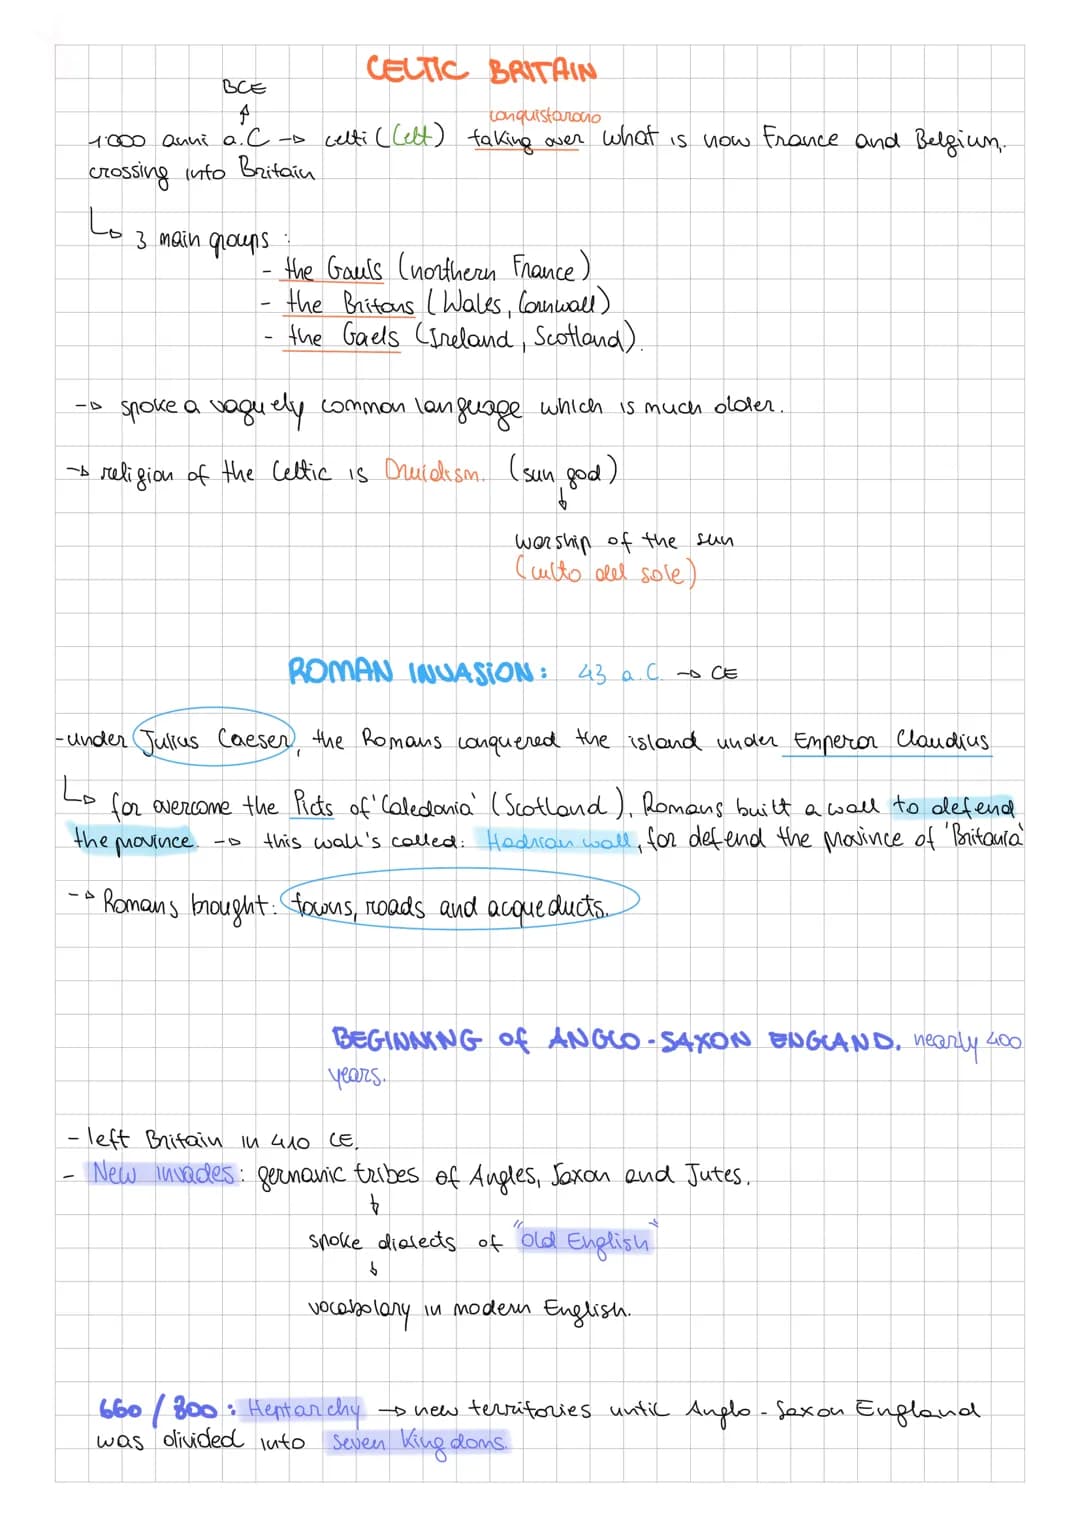 CELTIC BRITAIN
BCE
conquistarono
1'000 anni a.C → celti (Celt) taking over what is now France and Belgium.
crossing into Britain
↳ 3 main groups :
- the Gauls (northern France)
- the Britons (Wales, Cornwall)
- the Gaels (Ireland, Scotland).
→ spoke a vaguely common language which is much older.
→ religion of the Celtic is Druidism. (sun god)
↓
worship of the sun
(culto del sole)
ROMAN INVASION: 43 a.C. → CE
- under Julius Caeser, the Romans conquered the island under Emperor Claudius
↳ for overcome the Picts of 'Caledonia' (Scotland), Romans built a wall to defend
the province. → this wall's called: Hadrian wall, for defend the province of 'Britania'
→ Romans brought: towns, roads and acqueducts.
BEGINNING of ANGLO-SAXON ENGLAND. nearly 400
years.
- left Britain in 410 CE.
- New invades: germanic tribes of Angles, Saxon and Jutes.
↓
spoke dialects of "Old English"
↓
vocabolary in modern English.
660 / 800 : Heptarchy → new territories until Anglo-Saxon England
was divided into Seven Kingdoms.